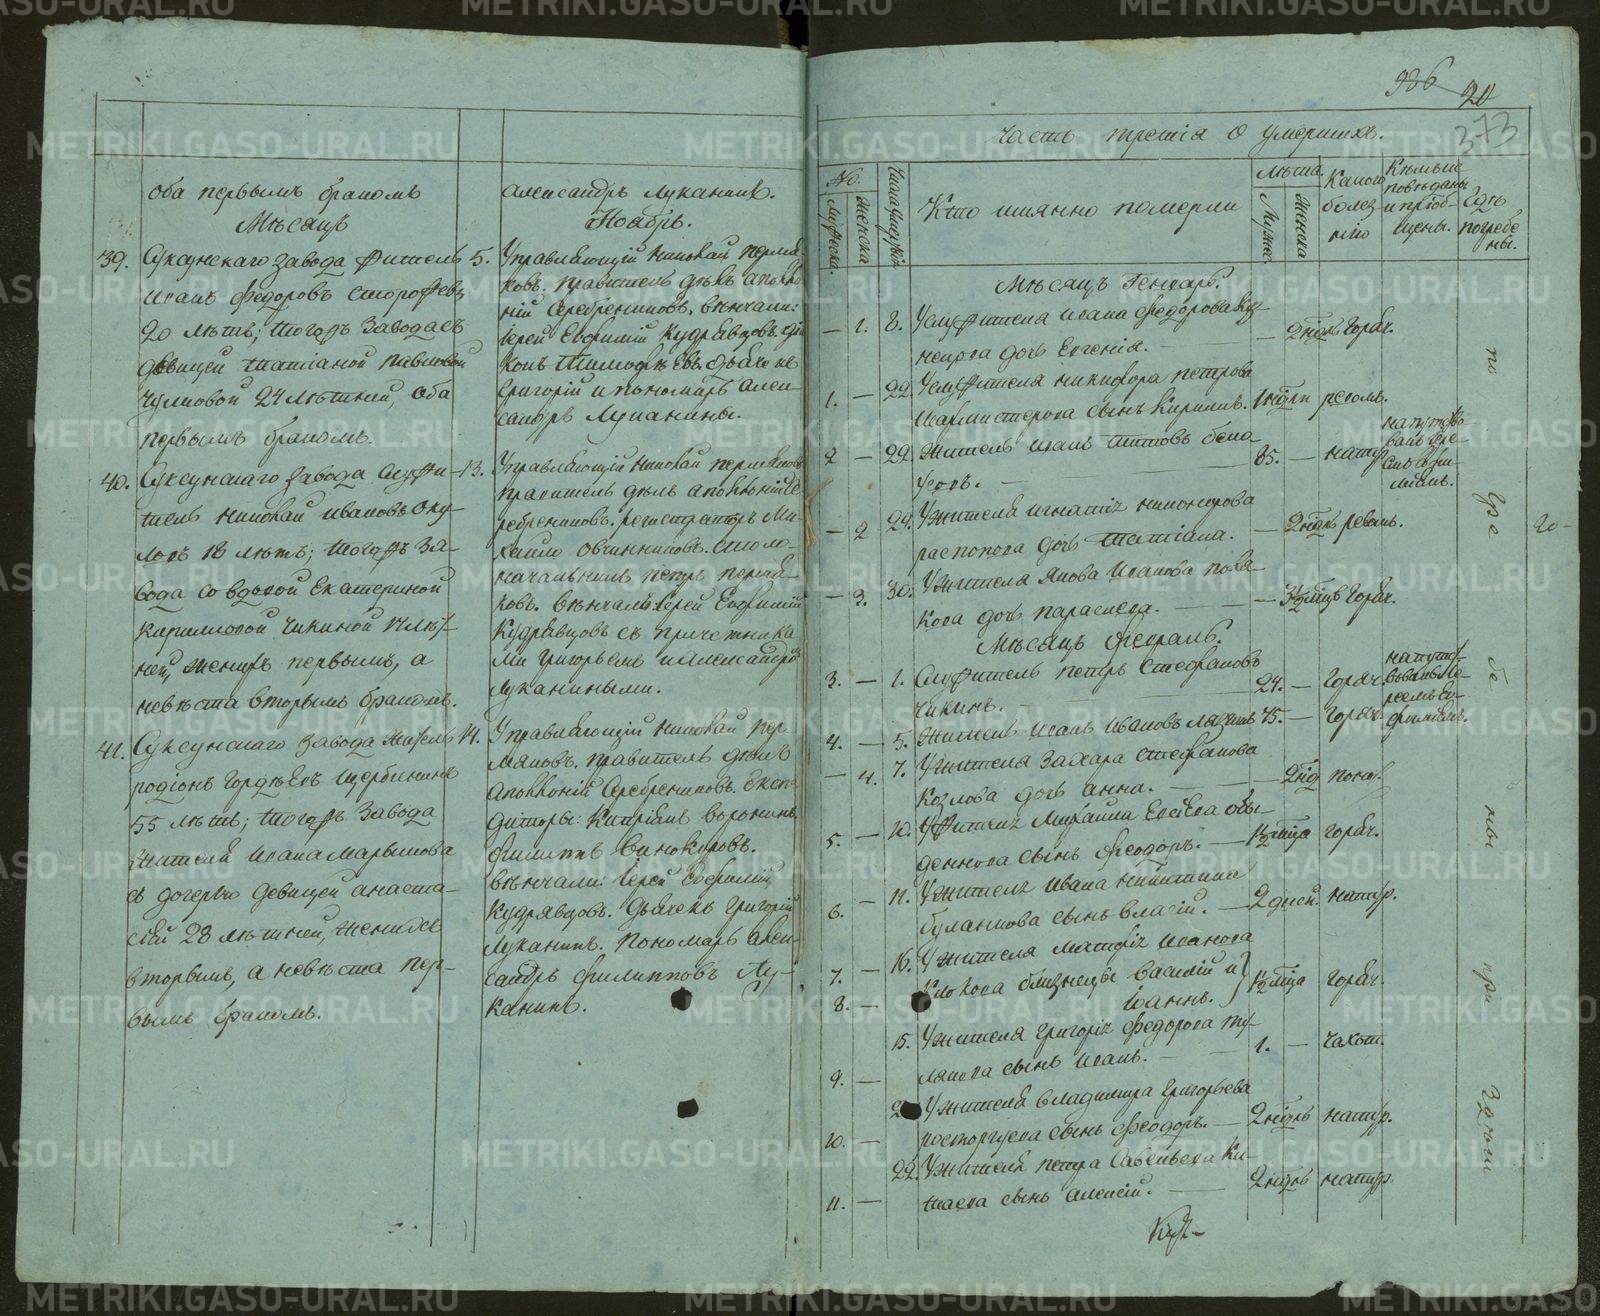 оба первымъ бракомъ
Мѣсяцъ
39. Суксунскаго завода житель
Иванъ Федоровъ Сторожевъ
20 лѣтъ; того жъ завода съ
дѣвицей Татіаной Павловой
Чулковой 24 лѣтней, оба
первымъ бракомъ.
40. Суксунскаго завода служи-
тель Николай Ивановъ Оку-
ловъ 18 лѣтъ; того жъ за-
вода со вдовой Екатериной
Кирилловой Чикиной
ней, женихъ первымъ, а
невѣста вторымъ бракомъ.
41. Суксунскаго завода житель
Родіонъ Гордѣевъ Щербининъ
55 лѣтъ; того жъ завода
жителя Ивана Мартынова
съ дочерью девицей Анаста-
сіей 28 лѣтней, женихъ
вторымъ, а невѣста пер-
вымъ бракомъ.
Александръ Луканинъ.
Ноябрь.
5. Управляющій Николай Пермя-
ковъ. Правитель дѣлъ Аполло-
ній Серебрениковъ. Вѣнчали:
Іерей Евфимій Кудрявцовъ. Дiа
конъ Тимофѣевъ. Дьячекъ
Григорій и пономарь Алек-
сандръ Луканины.
13. Управляющій Николай Пермяковъ
Правитель дѣлъ Аполлоній Се
ребрениковъ. Регистраторъ Ми-
хайло Овчинниковъ. Столо-
начальникъ Петръ Пермя-
ковъ. Вѣнчалъ: Іерей Евфимій
Кудрявцовъ съ причетника
ми Григорьемъ и Александромъ
Луканиными.
14. Управляющій Николай Пер-
мяковъ. Правитель дѣлъ
Аполлоній Серебрениковъ. Експе-
диторы: Кипріянъ Воронинъ
Филиппъ Винокуровъ.
Вѣнчали: Іерей Евфимій
Кудрявцовъ. Дьячекъ Григорій
Луканинъ. Пономарь Алек-
сандръ Филипповъ Лу-
канинъ.
20
373
Часть третія о умершихъ.
No.
Мужеска.
Женска
Кто имянно померли
Лѣта.
Мужес.
Женска
Какою
болез
нію
Кѣмъ ис
повѣданы
и пріоб-
щены.
Гдѣ
погребе
ны.
Мѣсяцъ Генварь.
— 1. 8. У служителя Ивана Федорова Куз-
нецова дочь Евгенія. — — 2 недѣль горяч.
1. — 22. У служителя Никифора Петрова
Шахмистерова сынъ Кириллъ. 1 недѣли ревом.
2 — 29. Житель Иванъ Титовъ Бело-
усовъ. — 85. — натур.
— 2 29. У жителя Игнатія Никонорова
Распопова дочь Татіана. — 2 недѣль ревом.
— 3. 30. У жителя Якова Иванова Поля-
кова дочь Параскева. — — 3½ мѣсяцъ горяч.
Мѣсяцъ Февраль.
3. — 1. Служитель Петръ Стефановъ
Чикинъ. — 24. — горяч.
4. — 5. Житель Иванъ Ивановъ 45. — горяч.
— 4. 7. У жителя Захара Стефанова
Козлова дочь Анна. — — 2 нед
5. — 10. У жителя Михаила Евсѣева Обы-
деннова сынъ Феодоръ. — 1½ мѣсяца горяч.
6. — 11. У жителя Ивана Никитина
Буланцова сынъ Власій. — 2 дней. натур.
7. — 16. У жителя Матфія Иванова
8. — близнецы Василій и Іоаннъ. 1½ мѣсяца горяч.
9. — 15. У жителя Григорія Федорова Ту-
лякова сынъ Иванъ. — 1. — чахот.
10. — У жителя Владимира Григорьева
Расторгуева сынъ Феодоръ. — 2 недѣль натур.
11. — 22. У жителя Петра Савельева Ки-
таева сынъ Алексій. — 2 недѣль натур.
METRIKI.GASO-URAL.RU